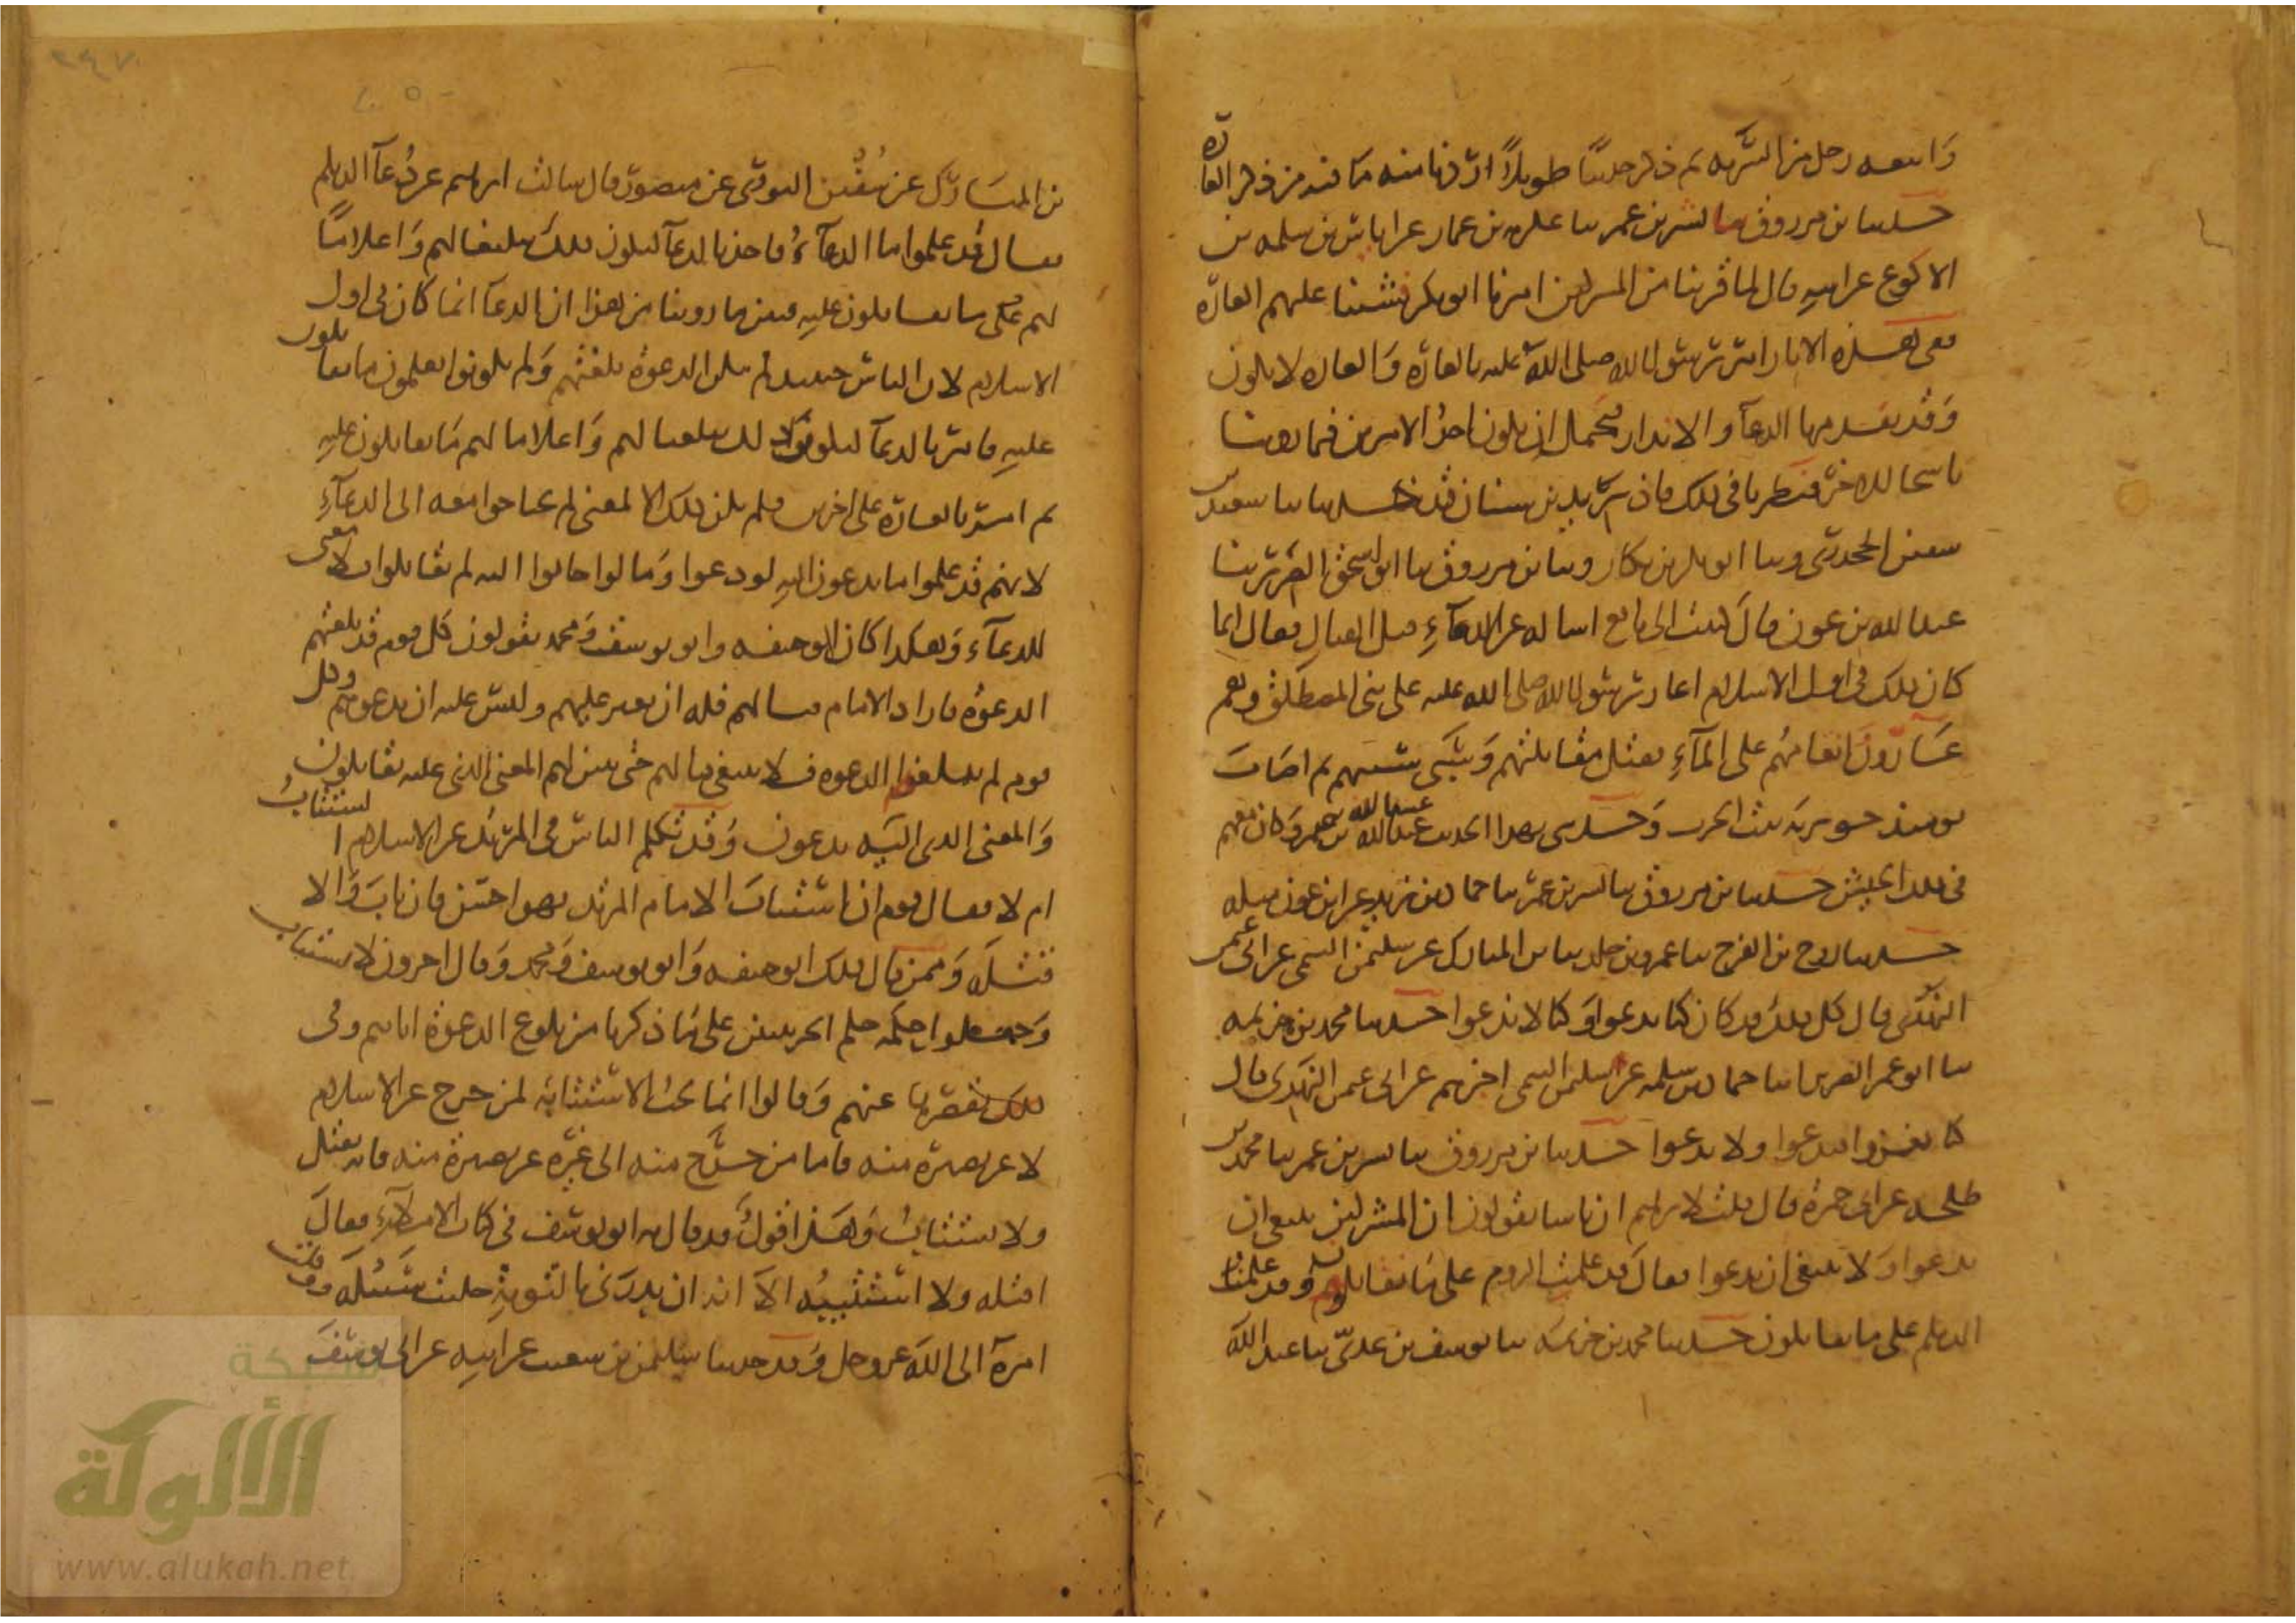 واتبعه رجل من السرية ثم ذكر حديثا طويلا اردنا منه ما فيه من ذكر الغارة
حدثنا بن مرزوق ثنا بشر بن عمر ثنا عكرمة بن عمار عن اياس بن سلمة بن
الاكوع عن ابيه قال لما قربنا من المشركين امرنا ابو بكر فشننا عليهم الغارة
ففى هذه الاثار امر رسول الله صلى الله عليه بالغارة والغارة لا يكون
وقد يقدمها الدعآ والانذار فيحتمل ان يكون احد الامرين فيما روينا
ناسخا للاخر فنظرنا فى ذلك فاذا يزيد بن سنان قد حدثنا ثنا سعيد بن
سفين الجحدرى وثنا ابو بكر بن بكار وثنا بن مرزوق ثنا ابو اسحق الضرير ثنا
عبد الله بن عون قال كتبت الى نافع اساله عن الدعآء قبل القتال فقال انما
كان ذلك فى اول الاسلام اغار رسول الله صلى الله عليه على بنى المصطلق وهم
غارون انعامهم على المآء فقتل مقاتلتهم وسبى سبيهم ثم اصاب
يومئذ جويرية بنت الحرث وحدثنى بهذا الحديث عبد الله بن عمر وكان معهم
فى ذلك الجيش حدثنا بن مرزوق ثنا بشر بن عمر ثنا حماد بن زيد عن ابن عون مثله
حدثنا روح بن الفرج ثنا عمرو بن خلد ثنا بن المبارك عن سليمن التيمى عن ابى عثمن
النهدى قال كل ذلك قد كان كنا ندعوا وكنا لا ندعوا حدثنا محمد بن خزيمة
ثنا ابو عمر الضرير انا حماد بن سلمة عن سليمن التيمى اخبرهم عن ابى عثمن النهدى قال
كنا نغزوا فندعوا ولا ندعوا حدثنا بن مرزوق ثنا بشر بن عمر ثنا محمد بن
طلحة عن ابى حمزة قال قلت لابرهيم ان ناسا يقولون ان المشركين ينبغى ان
يدعوا ولا ينبغى ان يدعوا فقال قد علمت الروم على ما يقاتلون وقد علمت
الديلم على ما يقاتلون حدثنا محمد بن خزيمة ثنا يوسف بن عدى ثنا عبد الله
بن المبارك عن سفين الثورى عن منصور قال سالت ابرهيم عن دعآ الديلم
فقال قد علموا ما الدعآء فاحذنا الدعآ ليكون ذلك تبليغا لهم واعلاما
لهم على ما يقاتلون عليه فبين ما روينا من هذا ان الدعآ انما كان فى اول
الاسلام لان الناس حينئذ لم تكن الدعوة بلغتهم ولم يكونوا يعلمون ما يقاتلون
عليه فامر بالدعآ ليكون ذلك تبليغا لهم واعلاما لهم ما يقاتلون عليه
ثم امر بالغارة على اخرين فلم يكن ذلك الا لمعنى لم يحتاجوا معه الى الدعآء
لانهم قد علموا ما يدعون اليه لو دعوا وما لو اجابوا اليه لم يقاتلوا فلا معنى
للدعآء وهكذا كان ابو حنيفة وابو يوسف ومحمد يقولون كل قوم قد بلغتهم
الدعوة فاراد الامام قتالهم فله ان يغير عليهم وليس عليه ان يدعوهم وكل
قوم لم تبلغهم الدعوة فلا ينبغى قتالهم حتى يتبين لهم المعنى الذى عليه يقاتلون
والمعنى الذى اليه يدعون وقد تكلم الناس فى المرتد عن الاسلام ايستتاب
ام لا فقال قوم ان استتاب الامام المرتد فهو احسن فان تاب والا
قتله وممن قال ذلك ابو حنيفة وابو يوسف ومحمد وقال اخرون لا يستتاب
وجعلوا حكمه حكم الحربيين على ما ذكرنا من بلوغ الدعوة اياهم وفى
ذلك تقصيرها عنهم وقالوا انما تجب الاستتابة لمن خرج عن الاسلام
لا عن بصيرة منه فاما من خرج منه الى غيره عن بصيرة منه فانه يقتل
ولا يستتاب وهذا قول قد قال به ابو يوسف فى كتاب الاملآء فقال
اقتله ولا استتيبه الا انه ان بدرنى بالتوبة خليت سبيله ووكلت
امره الى الله عز وجل وقد حدثنا سليمن بن شعيب عن ابيه عن ابى يوسف
شبكة
الألوكة
www.alukah.net